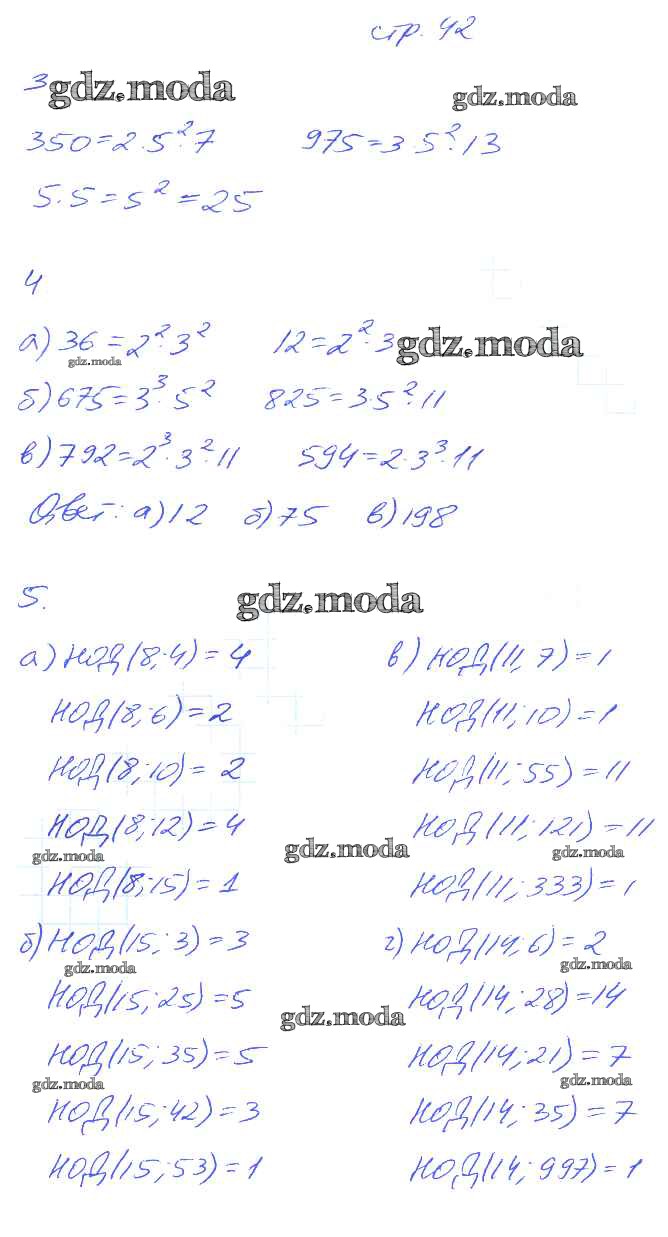 стр. 42
3 gdz.moda gdz.moda
350=2·5²·7 975=3·5²·13
5·5=5²=25
4
а) 36=2²·3² 12=2²·3 gdz.moda
gdz.moda
б) 675=3³·5² 825=3·5²·11
в) 792=2³·3²·11 594=2·3³·11
Ответ: а) 12 б) 75 в) 198
5. gdz.moda
а) НОД(8;4)=4
НОД(8;6)=2
НОД(8;10)=2
НОД(8;12)=4
gdz.moda
НОД(8;15)=1
б) НОД(15;3)=3
gdz.moda
НОД(15;25)=5
НОД(15;35)=5
gdz.moda
НОД(15;42)=3
НОД(15;53)=1
gdz.moda
gdz.moda
в) НОД(11;7)=1
НОД(11;10)=1
НОД(11;55)=11
НОД(11;121)=11
gdz.moda
НОД(11;333)=1
г) НОД(14;6)=2
gdz.moda
НОД(14;28)=14
НОД(14;21)=7
gdz.moda
НОД(14;35)=7
НОД(14;997)=1